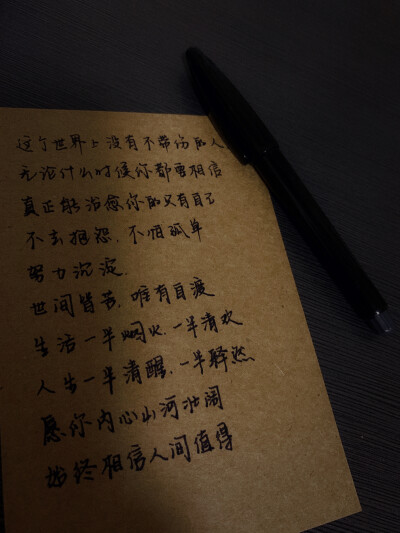 这个世界上没有不带伤的人
无论什么时候你都要相信
真正能治愈你的只有自己
不去抱怨.不怕孤单
努力沉淀.
世间皆苦.唯有自渡
生活一半烟火.一半清欢
人生一半清醒.一半释然
愿你内心山河壮阔
始终相信人间值得